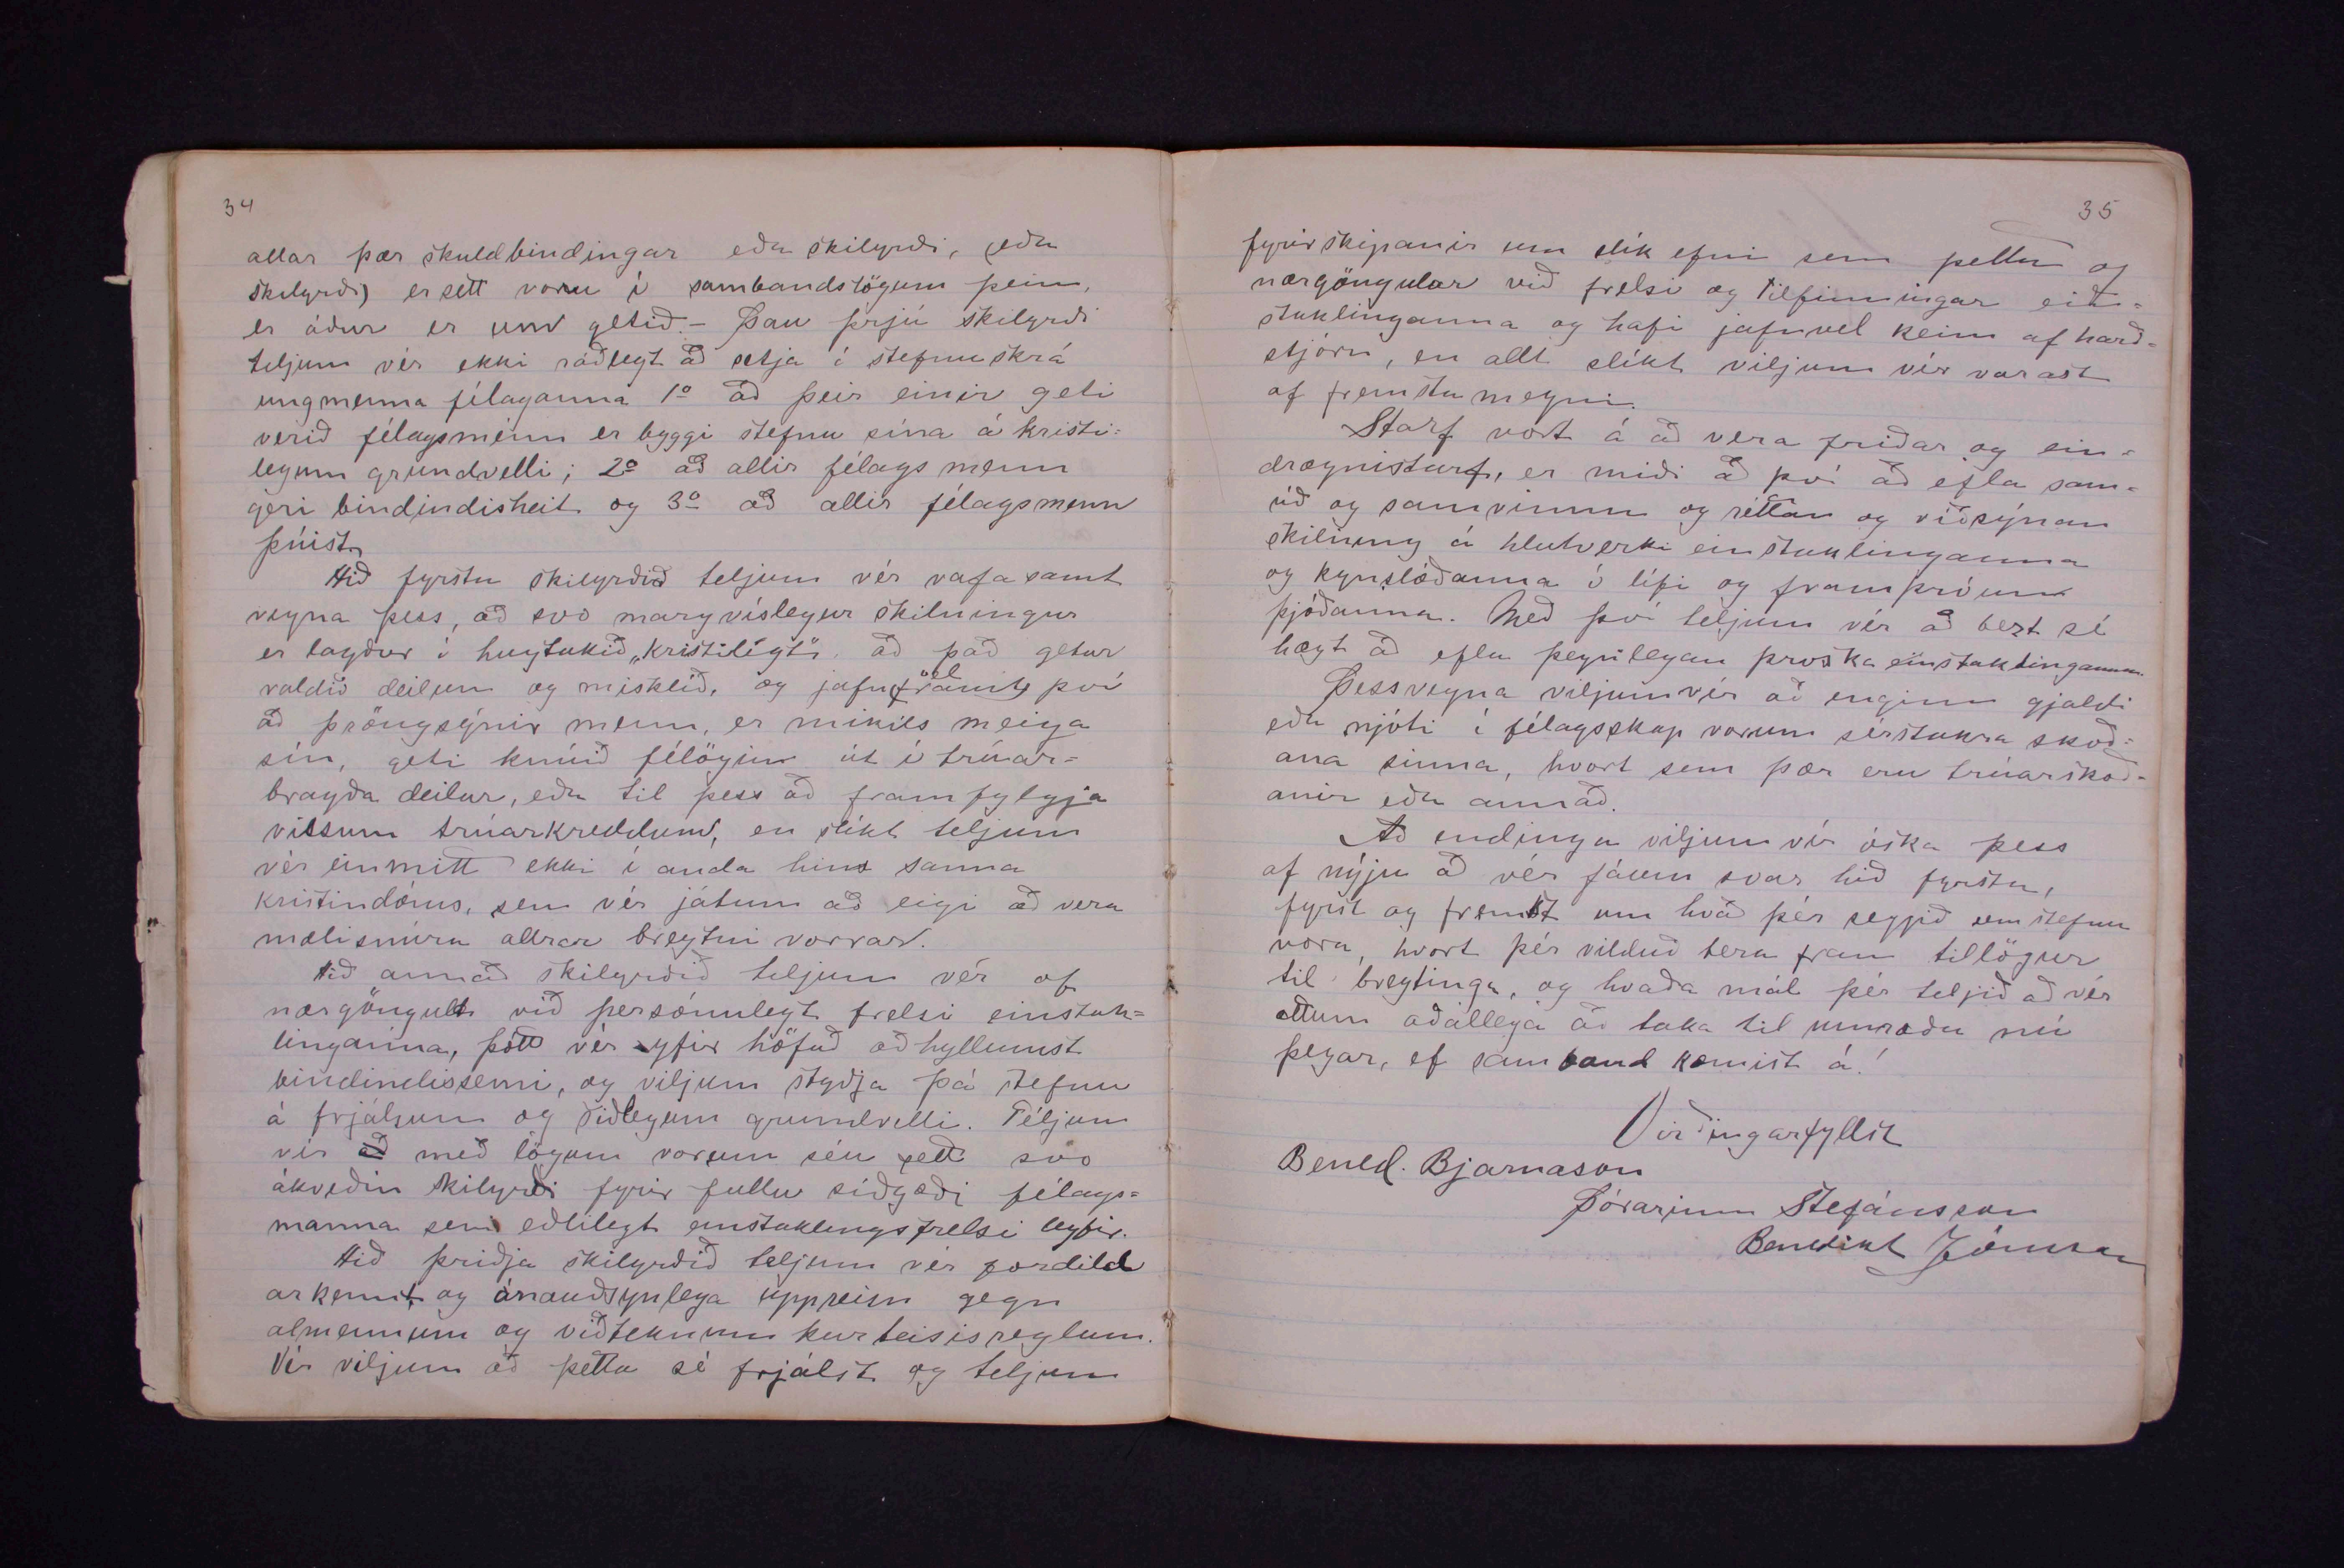 34
allar þær skuldbindingar eða skilyrði, (eða
skilyrði) er sett voru í sambandslögum þeim,
er áður er um getið. – Þau þrjú skilyrði
teljum vér ekki ráðlegt að setja í stefnuskrá
ungmenna félaganna 1º að þeir einir geti
verið félagsmenn er byggi stefnu sína á kristi=
legum grundvelli; 2º að allir félagsmenn
geri bindindisheit og 3º að allir félagsmenn
þúist.
Hið fyrsta skilyrðið teljum vér vafasamt
vegna þess, að svo margvíslegur skilningur
er lagður í hugtakið „kristilegt", að það getur
valdið deilum og misklíð, og jafnvel því
að þröngsýnir menn, er mikils meiga
sín, geti knúið félögin út í trúar=
bragða deilur, eða til þess að framfylgja
vissum trúarkreddum, en slíkt teljum
vér einmitt ekki í anda hins sanna
kristindóms, sem vér játum að eigi að vera
mælisnúra allrar breytni vorrar.
Hið annað skilyrðið teljum vér of
nærgöngult við persónulegt frelsi einstak=
linganna, þótt vér yfir höfuð aðhyllumst
bindindissemi, og viljum styðja þá stefnu
á frjálsum og siðlegum grundvelli. Teljum
vér að með lögum vorum séu sett svo
ákveðin skilyrði fyrir fullu siðgæði félags=
manna sem eðlilegt einstaklingsfrelsi leyfir.
Hið þriðja skilyrðið teljum vér fordild
arkennt og ónauðsynlega uppreisn gegn
almennum og viðteknum kurteisisreglum.
Vér viljum að þetta sé frjálst og teljum
35
fyrirskipanir um slík efni sem þettu of
nærgöngular við frelsi og tilfinningar ein=
staklinganna og hafi jafnvel keim af harð=
stjórn, en allt slíkt viljum vér varast
af fremsta megni.
Starf vort á að vera friðar og ein=
drægnistarf, er miði að því að efla sam=
úð og samvinnu og réttan og víðsýnan
skilning á hlutverki einstaklinganna
og kynslóðanna í lífi og framþróun
þjóðanna. Með því teljum vér að bezt sé
hægt að efla þegnlegan þroska einstaklinganna.
Þessvegna viljum vér að enginn gjaldi
eða njóti í félagsskap vorum sérstakra skoð=
ana sinna, hvort sem þær eru trúarskoð=
anir eða annað.
Að endingu viljum vér óska þess
af nýju að vér fáum svar hið fyrsta,
fyrst og fremst um hvað þér segið um stefnu
vora, hvort þér vilduð bera fram tillögur
til breytinga, og hvaða mál þér teljið að vér
ættum aðallega að taka til umræðu nú
þegar, ef samband kæmist á!
Virðingarfyllst
Bened. Bjarnason
Þórarinn Stefánsson
Benedikt Jónsson